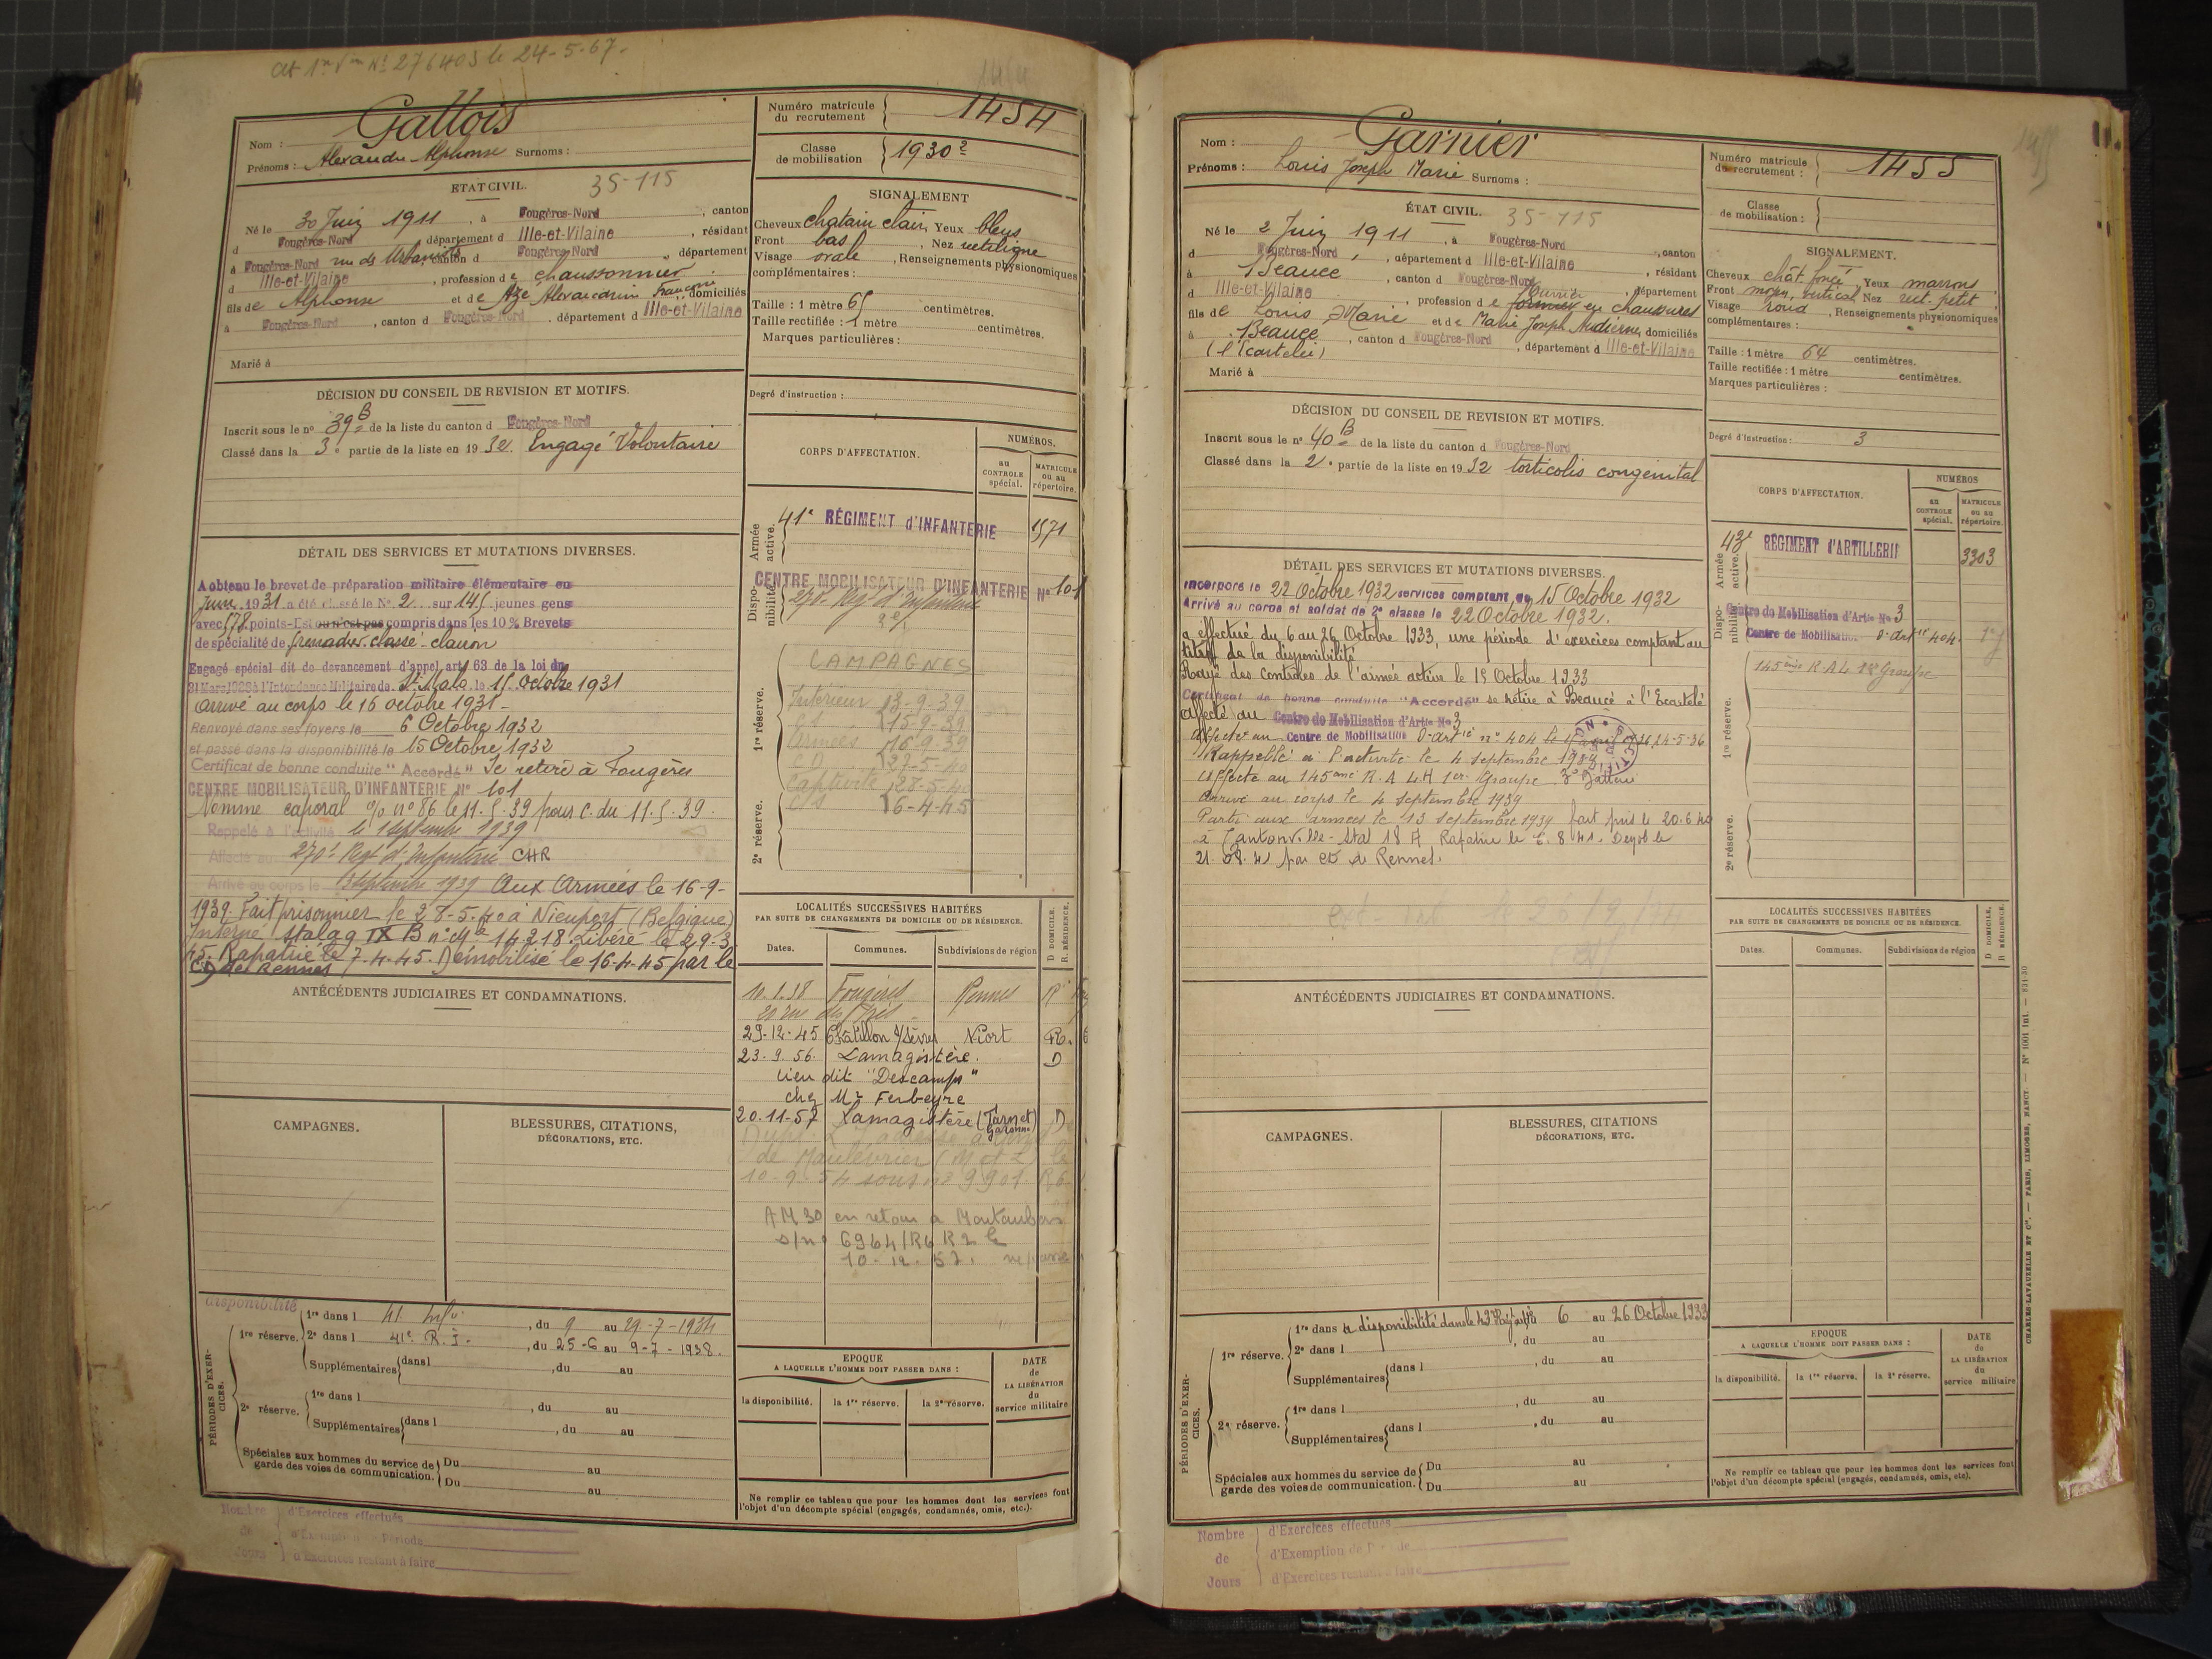 at 1re Vm No 276403 le 24-5-67.
Nom : Gallois
Prénoms : Alexandre Alphonse Surnoms :
Numéro matricule du recrutement 1454
Classe de mobilisation 1930²
ETAT CIVIL. 35-115
Né le 30 Juin 1911, à Fougères-Nord, canton
d Fougères-Nord, département d Ille-et-Vilaine, résidant
à Fougères-Nord rue des Urbanistes, canton d Fougères-Nord, département
d Ille-et-Vilaine, profession de chaussonnier
fils de Alphonse et de Azé Alexandrine Françoise domiciliés
à Fougères-Nord, canton d Fougères-Nord, département d Ille-et-Vilaine
Marié à
SIGNALEMENT
Cheveux chatain clair, Yeux bleus
Front bas, Nez rectiligne
Visage ovale, Renseignements physionomiques
complémentaires :
Taille : 1 mètre 65 centimètres.
Taille rectifiée : 1 mètre centimètres.
Marques particulières :
Degré d'instruction :
DÉCISION DU CONSEIL DE REVISION ET MOTIFS.
Inscrit sous le no 39 B de la liste du canton d Fougères-Nord
Classé dans la 3e partie de la liste en 1932. Engagé Volontaire
CORPS D'AFFECTATION.
NUMÉROS.
au CONTROLE spécial.
MATRICULE ou au répertoire.
Armée active.
41e RÉGIMENT d'INFANTERIE 1571
Disponibilité
CENTRE MOBILISATEUR D'INFANTERIE No 101
270e Regt d'Infanterie
1re réserve.
CAMPAGNES
Intérieur 3-9-39
CS 15-9-39
Armées 16-9-39
CD 27-5-40
Captivité 28-5-40
CS 6-4-45
2e réserve.
DÉTAIL DES SERVICES ET MUTATIONS DIVERSES.
A obtenu le brevet de préparation militaire élémentaire en
Juin 1931 a été classé le No 2 sur 145 jeunes gens
avec 578 points-Est ou n'est pas compris dans les 10% Brevets
de spécialité de grenadier classé clairon
Engagé spécial dit de devancement d'appel art. 63 de la loi du
31 Mars 1928 à l'Intendance Militaire de St Malo le 15 octobre 1931
arrivé au corps le 16 octobre 1931-
Renvoyé dans ses foyers le 6 Octobre 1932
et passé dans la disponibilité le 15 Octobre 1932
Certificat de bonne conduite "Accordé" Se retire à Fougères
CENTRE MOBILISATEUR D'INFANTERIE No 101
Nommé caporal o/o no 86 le 11.5.39 pour c. du 11.5.39.
Rappelé à l'activité le 1 septembre 1939
Affecté au 270e Regt d'Infanterie CHR
Arrivé au corps le 3 septembre 1939 Aux Armées le 16-9-
1939. Fait prisonnier le 28-5-40 à Nieuport (Belgique)
Interné stalag IX B no Me 14218. Libéré le 29-3-
45. Rapatrié le 7-4-45. Démobilisé le 16-4-45 par le
CD de Rennes
ANTÉCÉDENTS JUDICIAIRES ET CONDAMNATIONS.
CAMPAGNES.
BLESSURES, CITATIONS, DÉCORATIONS, ETC.
LOCALITÉS SUCCESSIVES HABITÉES
PAR SUITE DE CHANGEMENTS DE DOMICILE OU DE RÉSIDENCE.
Dates. Communes. Subdivisions de région D DOMICILE. R RÉSIDENCE.
10.1.38 Fougères Rennes R
20 rue des Prés
29-12-45 Châtillon s/Sèvres Niort R.
23.9.56. Lamagistère. D
Lieu dit "Descamps"
chez Mr Ferbeyre
20.11-57 Lamagistère (Tarn et Garonne) D
de Maulévrier (M et L) le
10-9-54 sous no 9901 R6
AM 30 en retour à Montauban
s/no 6964/R6 R2 le
10-12.57.
PÉRIODES D'EXERCICES.
disponibilité
1re réserve. 1re dans l 41 Infie, du 9 au 29-7-1934
2e dans l 41e R.I., du 25-6 au 9-7-1938.
Supplémentaires dans l, du au
2e réserve. 1re dans l, du au
Supplémentaires dans l, du au
Spéciales aux hommes du service de garde des voies de communication. Du au
Du au
EPOQUE
A LAQUELLE L'HOMME DOIT PASSER DANS :
la disponibilité. la 1re réserve. la 2e réserve.
DATE de LA LIBÉRATION du service militaire
Ne remplir ce tableau que pour les hommes dont les services font
l'objet d'un décompte spécial (engagés, condamnés, omis, etc.).
Nombre de Jours
d'Exercices effectués
d'Exemption de Période
d'Exercices restant à faire
Nom : Garnier
Prénoms : Louis Joseph Marie Surnoms :
Numéro matricule de recrutement : 1455
Classe de mobilisation :
ÉTAT CIVIL. 35-115
Né le 2 Juin 1911, à Fougères-Nord, canton
d Fougères-Nord, département d Ille-et-Vilaine, résidant
à Beaucé, canton d Fougères-Nord, département
d Ille-et-Vilaine, profession de ouvrier en chaussures
fils de Louis Marie et de Marie Joseph domiciliés
à Beaucé, canton d Fougères-Nord, département d Ille-et-Vilaine
(l'Ecartelé)
Marié à
SIGNALEMENT.
Cheveux chât. foncé, Yeux marrons
Front moyen, vertical, Nez rect. petit
Visage rond, Renseignements physionomiques
complémentaires :
Taille : 1 mètre 64 centimètres.
Taille rectifiée : 1 mètre centimètres.
Marques particulières :
Degré d'instruction : 3
DÉCISION DU CONSEIL DE REVISION ET MOTIFS.
Inscrit sous le no 40 B de la liste du canton d Fougères-Nord
Classé dans la 2e partie de la liste en 1932 torticolis congénital
CORPS D'AFFECTATION.
NUMÉROS
au CONTROLE spécial.
MATRICULE ou au répertoire.
Armée active.
43e RÉGIMENT d'ARTILLERIE 3303
Disponibilité
Centre de Mobilisation d'Artie No 3
Centre de Mobilisation d'artie 404
1re réserve.
145ème R.A.L. 1er Groupe
2e réserve.
DÉTAIL DES SERVICES ET MUTATIONS DIVERSES.
Incorporé le 22 Octobre 1932 services comptant du 15 Octobre 1932
Arrivé au corps et soldat de 2e classe le 22 Octobre 1932.
a effectué du 6 au 26 Octobre 1933, une période d'exercices comptant au
titre de la disponibilité
Rayé des contrôles de l'armée active le 15 Octobre 1933
Certificat de bonne conduite "Accordé" se retire à Beaucé à l'Ecartelé
affecté au Centre de Mobilisation d'Artie No 3
Affecté au Centre de Mobilisation d'artie no 404 le 24-5-36
Rappelé à l'activité le 4 septembre 1939
affecté au 145ème R.A.L.H 1er Groupe 3e Batterie
arrivé au corps le 4 septembre 1939
Parti aux armées le 13 septembre 1939 fait pris le 20.6.40
à Tantonville - Stal 18 A Rapatrié le 6.8.41. Démob le
21.08.41 par CD de Rennes.
ANTÉCÉDENTS JUDICIAIRES ET CONDAMNATIONS.
CAMPAGNES.
BLESSURES, CITATIONS, DÉCORATIONS, ETC.
LOCALITÉS SUCCESSIVES HABITÉES
PAR SUITE DE CHANGEMENTS DE DOMICILE OU DE RÉSIDENCE.
Dates. Communes. Subdivisions de région D DOMICILE. R RÉSIDENCE.
PÉRIODES D'EXERCICES.
1re réserve. 1re dans la disponibilité dans le 43e Régt artie 6 au 26 Octobre 1933
2e dans l, du au
Supplémentaires dans l, du au
2e réserve. 1re dans l, du au
Supplémentaires dans l, du au
Spéciales aux hommes du service de garde des voies de communication. Du au
Du au
EPOQUE
A LAQUELLE L'HOMME DOIT PASSER DANS :
la disponibilité. la 1re réserve. la 2e réserve.
DATE de LA LIBÉRATION du service militaire
Ne remplir ce tableau que pour les hommes dont les services font
l'objet d'un décompte spécial (engagés, condamnés, omis, etc).
Nombre de Jours
d'Exercices effectués
d'Exemption de Période
d'Exercices restant à faire
CHARLES-LAVAUZELLE ET Cie. — PARIS, LIMOGES, NANCY — No 1001 int. — 831-30